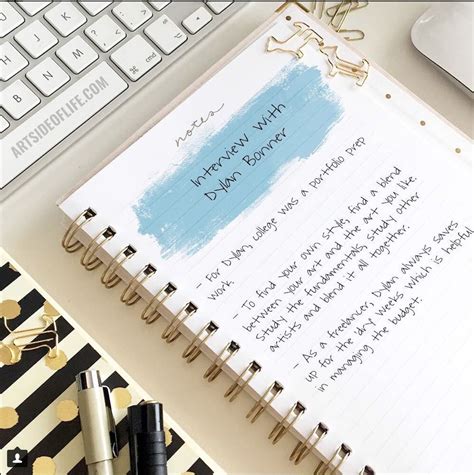 ARTSIDEOFLIFE.COM
notes
Interview with
Dylan Bonner
- For Dylan, college was a portfolio prep
work.
- To find your own style, find a blend
between your art and the art you like.
Study the fundamentals, study other
artists and blend it all together.
- As a freelancer, Dylan always saves
up for the dry weeks which is helpful
in managing the budget.